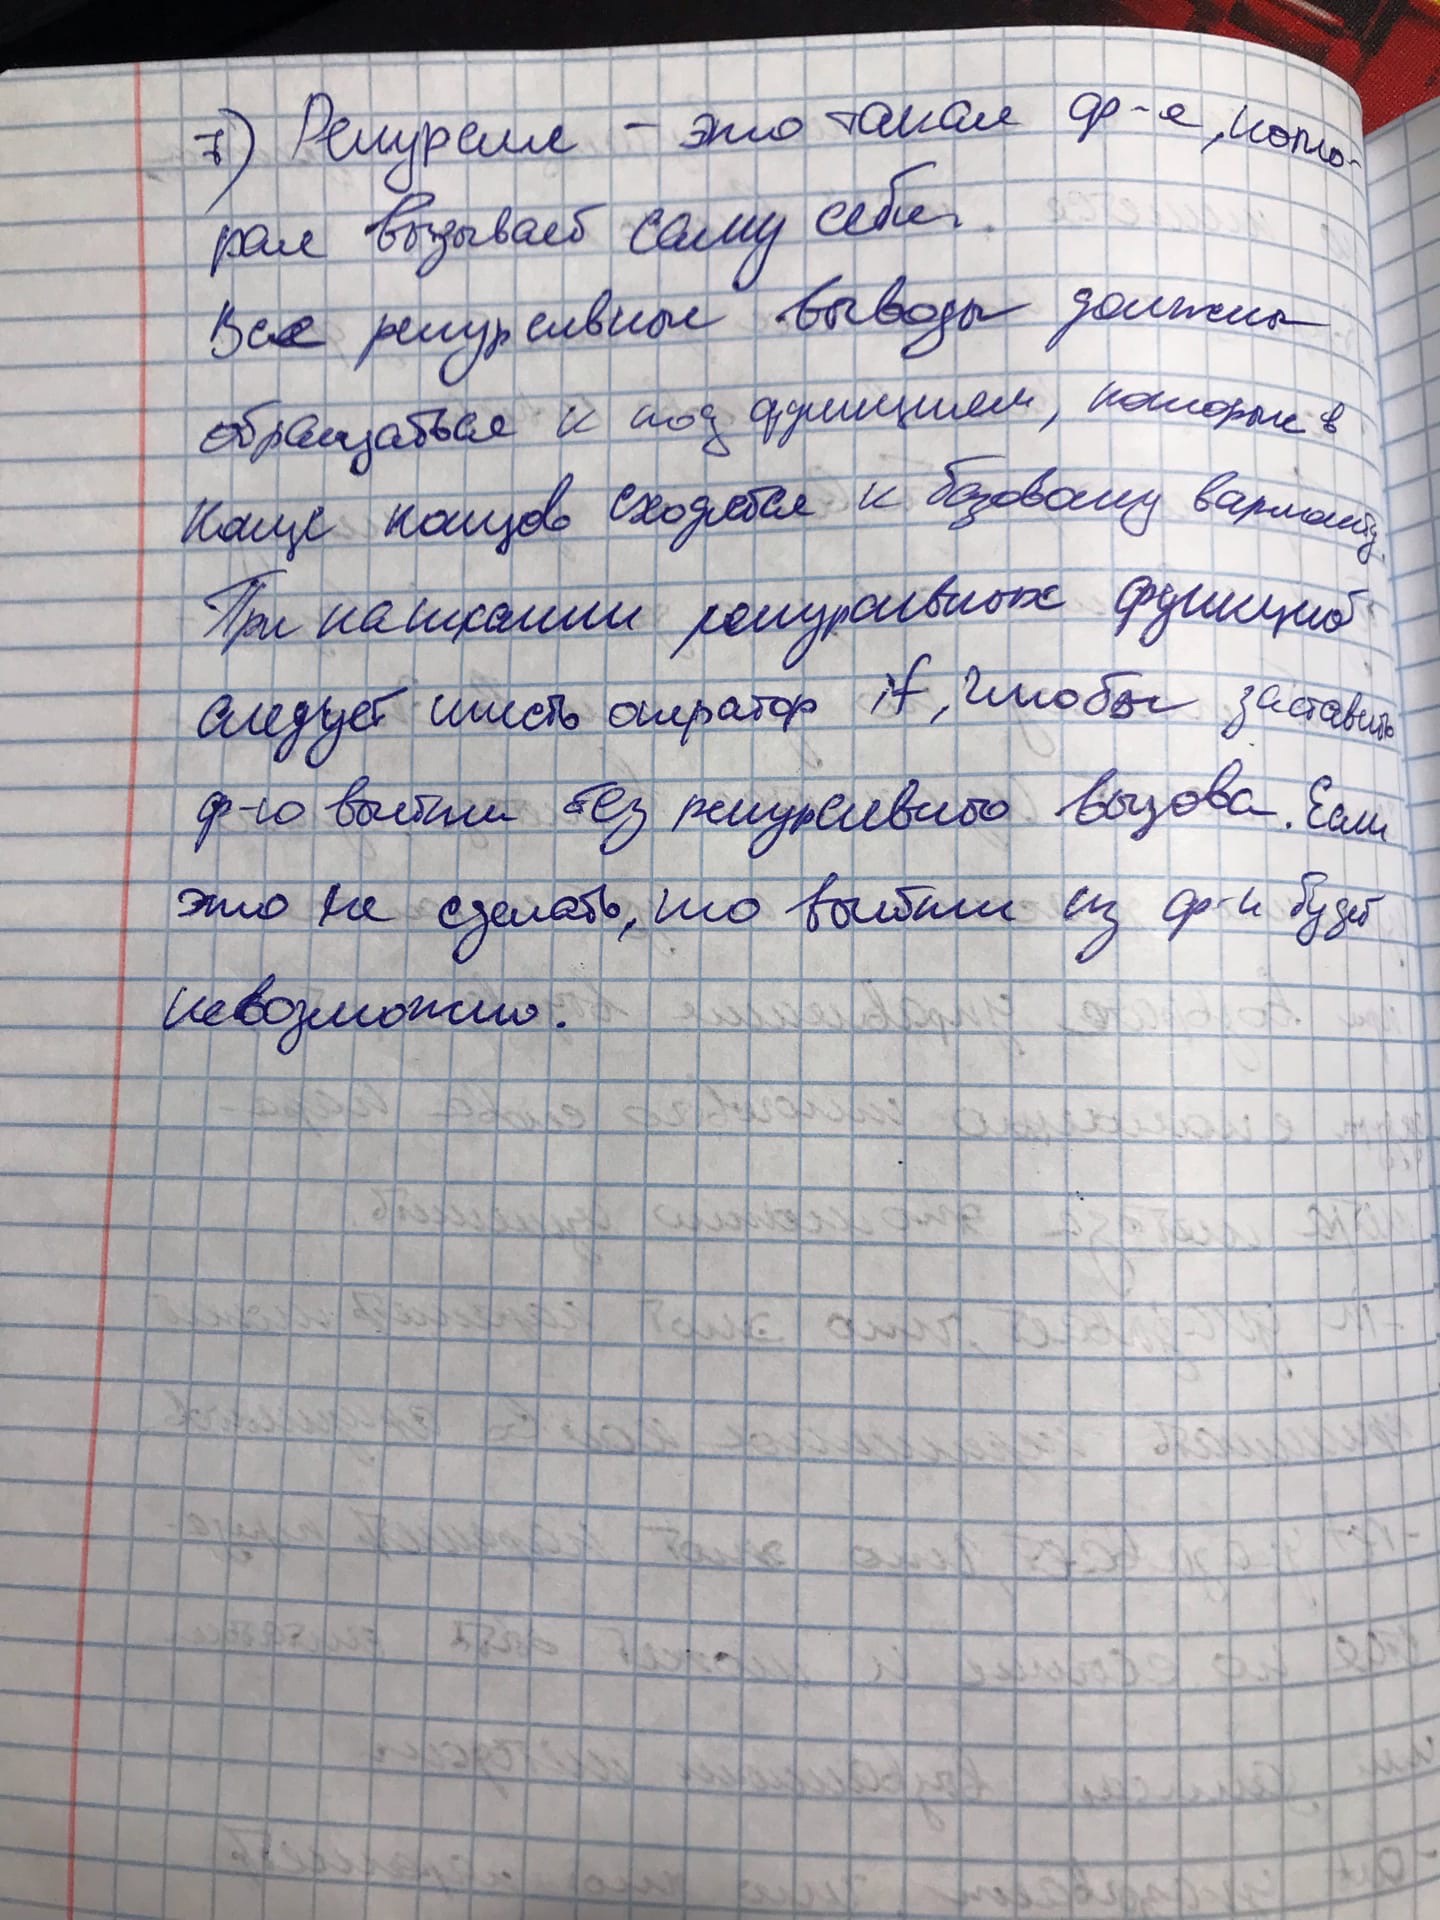 7) Рекурсия - это такая ф-я, кото-
рая вызывает саму себя.
Все рекурсивные выводы должны
обращаться к под функциям, которые в
конце концов сходятся к базовому варианту.
При написании рекурсивных функций
следует иметь оператор if, чтобы заставить
ф-ю выйти без рекурсивного вызова. Если
это не сделать, то выйти из ф-и будет
невозможно.